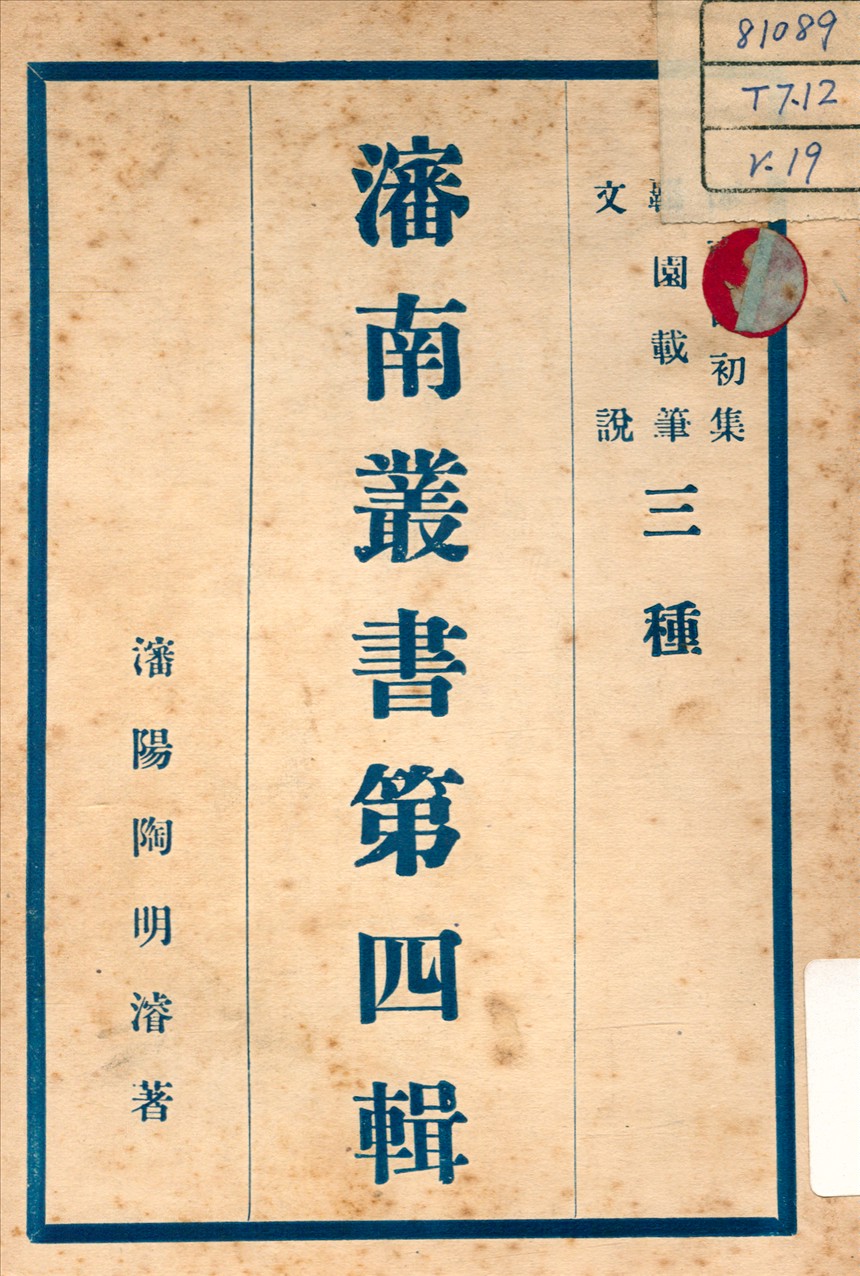 81089
T7.12
v.19
初集
園載筆
文說
三種
瀋南叢書第四輯
瀋陽陶明濬著